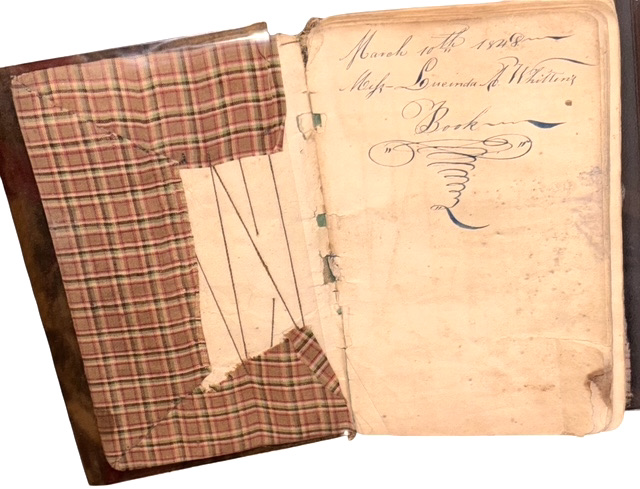 March 10th 1848
Miss Lucinda A Whitten's
Book